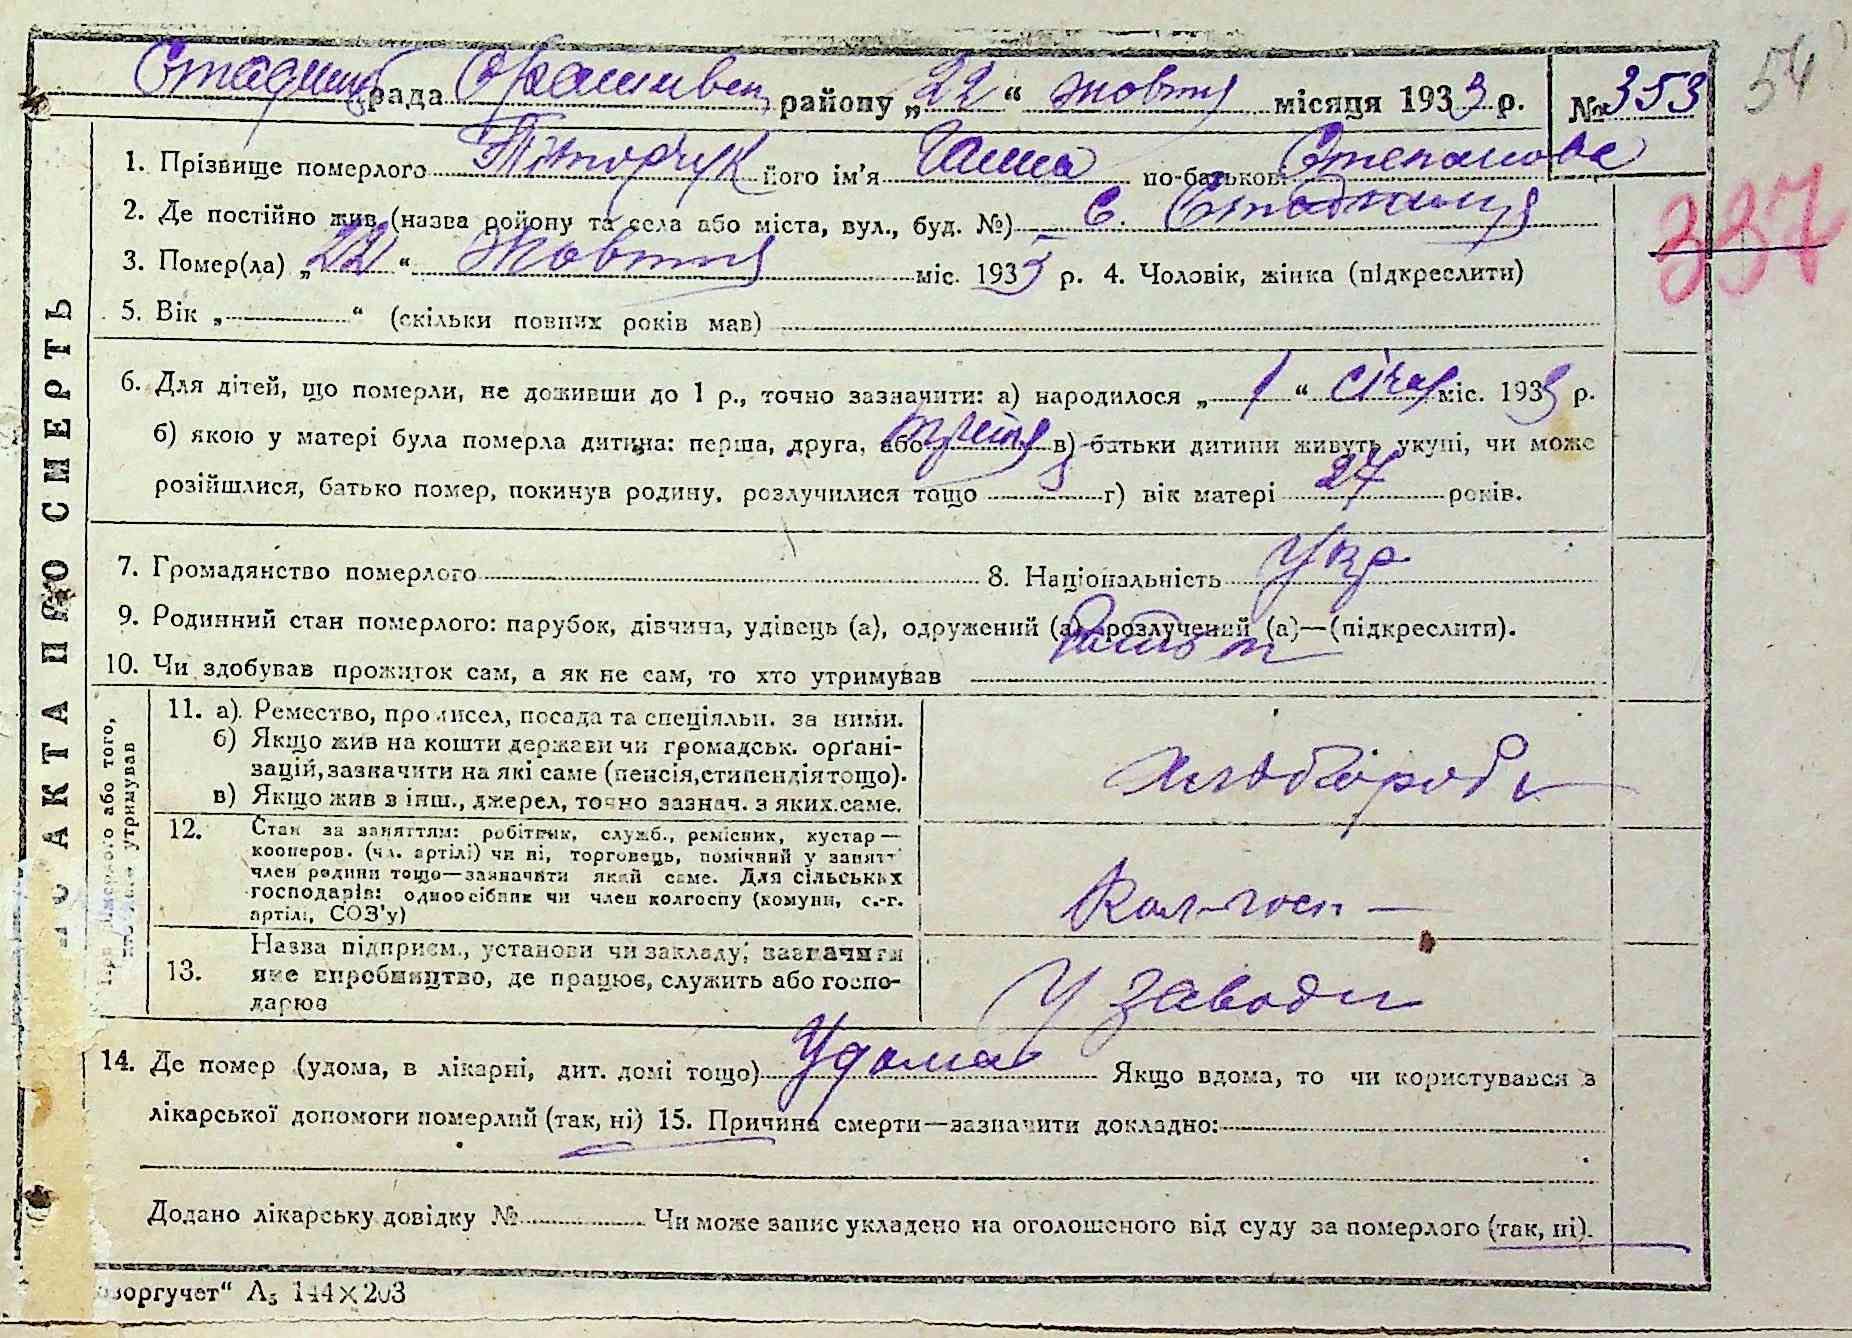 54
Стадниц рада районy „22“ жовтня місяця 1933 р. № 353
1. Прізвище померлого його ім'я Ганна по-батькові Степанова
337
2. Де постійно жив (назва району та села або міста, вул., буд. №) С. Стадниця
3. Помер(ла) „22“ Жовтня міс. 1933 р. 4. Чоловік, жінка (підкреслити)
5. Вік „ “ (скільки повних років мав)
6. Для дітей, що померли, не доживши до 1 р., точно зазначити: а) народилося „1“ січня міс. 1933 р.
б) якою у матері була померла дитина: перша, друга, або третя в) батьки дитини живуть укупі, чи може
розійшлися, батько помер, покинув родину, розлучилися тощо г) вік матері 27 років.
7. Громадянство померлого 8. Національність Укр
9. Родинний стан померлого: парубок, дівчина, удівець (а), одружений (а) розлучений (а)—(підкреслити).
10. Чи здобував прожиток сам, а як не сам, то хто утримував
11. а) Ремество, промисел, посада та спеціяльн. за ними.
б) Якщо жив на кошти держави чи громадськ. орґані-
зацій, зазначити на які саме (пенсія, стипендія тощо).
в) Якщо жив з інш., джерел, точно зазнач. з яких саме.
хлібороби
12. Стан за заняттям: робітник, служб., ремісник, кустар—
кооперов. (чл. артілі) чи ні, торговець, помічний у занятт
член родини тощо—зазначити який саме. Для сільських
господарів: одноосібник чи член колгоспу (комуни, с.-г.
артілі, СОЗ'у)
Кол-госп —
13. Назва підприєм., установи чи закладу, зазначити
яке виробництво, де працює, служить або госпо-
дарює
У заводи
14. Де помер (удома, в лікарні, дит. домі тощо) Удома Якщо вдома, то чи користувався з
лікарської допомоги померлий (так, ні) 15. Причина смерти—зазначити докладно:
Додано лікарську довідку № Чи може запис укладено на оголошеного від суду за померлого (так, ні).
АКТ А ПРО СМЕРТЬ
А₅ 144×203